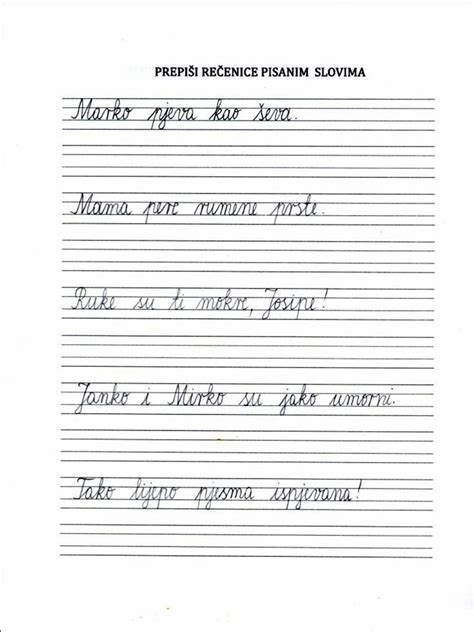 PREPIŠI REČENICE PISANIM SLOVIMA
Marko pjeva kao ševa.
Mama pere rumene prste.
Ruke su ti mokre, Josipe!
Janko i Mirko su jako umorni.
Tako lijepo pjesma ispjevana!